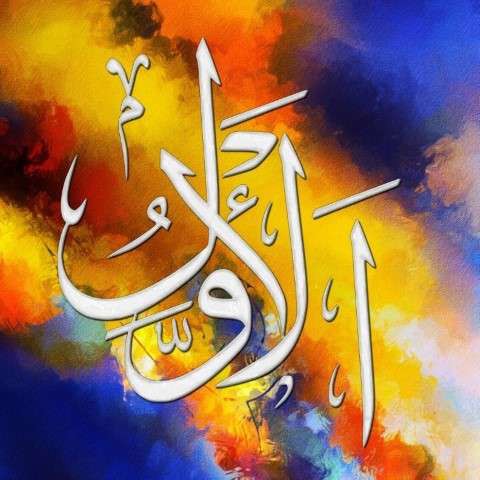 الأوّل